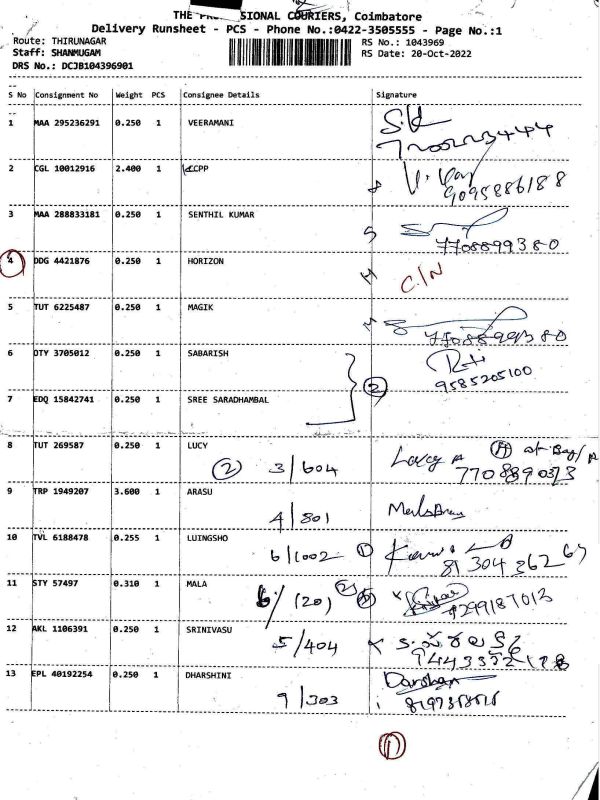 THE PROFESSIONAL COURIERS, Coimbatore
Delivery Runsheet - PCS - Phone No.:0422-3505555 - Page No.:1
Route: THIRUNAGAR RS No.: 1043969
Staff: SHANMUGAM RS Date: 20-Oct-2022
DRS No.: DCJB104396901
S No Consignment No Weight PCS Consignee Details Signature
1 MAA 295236291 0.250 1 VEERAMANI S.K
2 CGL 10012916 2.400 1 CPP
9095886188
3 MAA 288833181 0.250 1 SENTHIL KUMAR S
7708899380
4 DDG 4421876 0.250 1 HORIZON H C/N
5 TUT 6225487 0.250 1 MAGIK M
7708899380
6 DTY 3705012 0.250 1 SABARISH
2 9585205100
7 EDQ 15842741 0.250 1 SREE SARADHAMBAL
8 TUT 269587 0.250 1 LUCY
2 3/604
9 TRP 1949207 3.600 1 ARASU
4/801
10 TVL 6188478 0.255 1 LUINGSHO
6/1002 1
11 STY 57497 0.310 1 MALA
7299187013
12 AKL 1106391 0.250 1 SRINIVASU
5/404
13 EPL 40192254 0.250 1 DHARSHINI Darshan
9/303
1